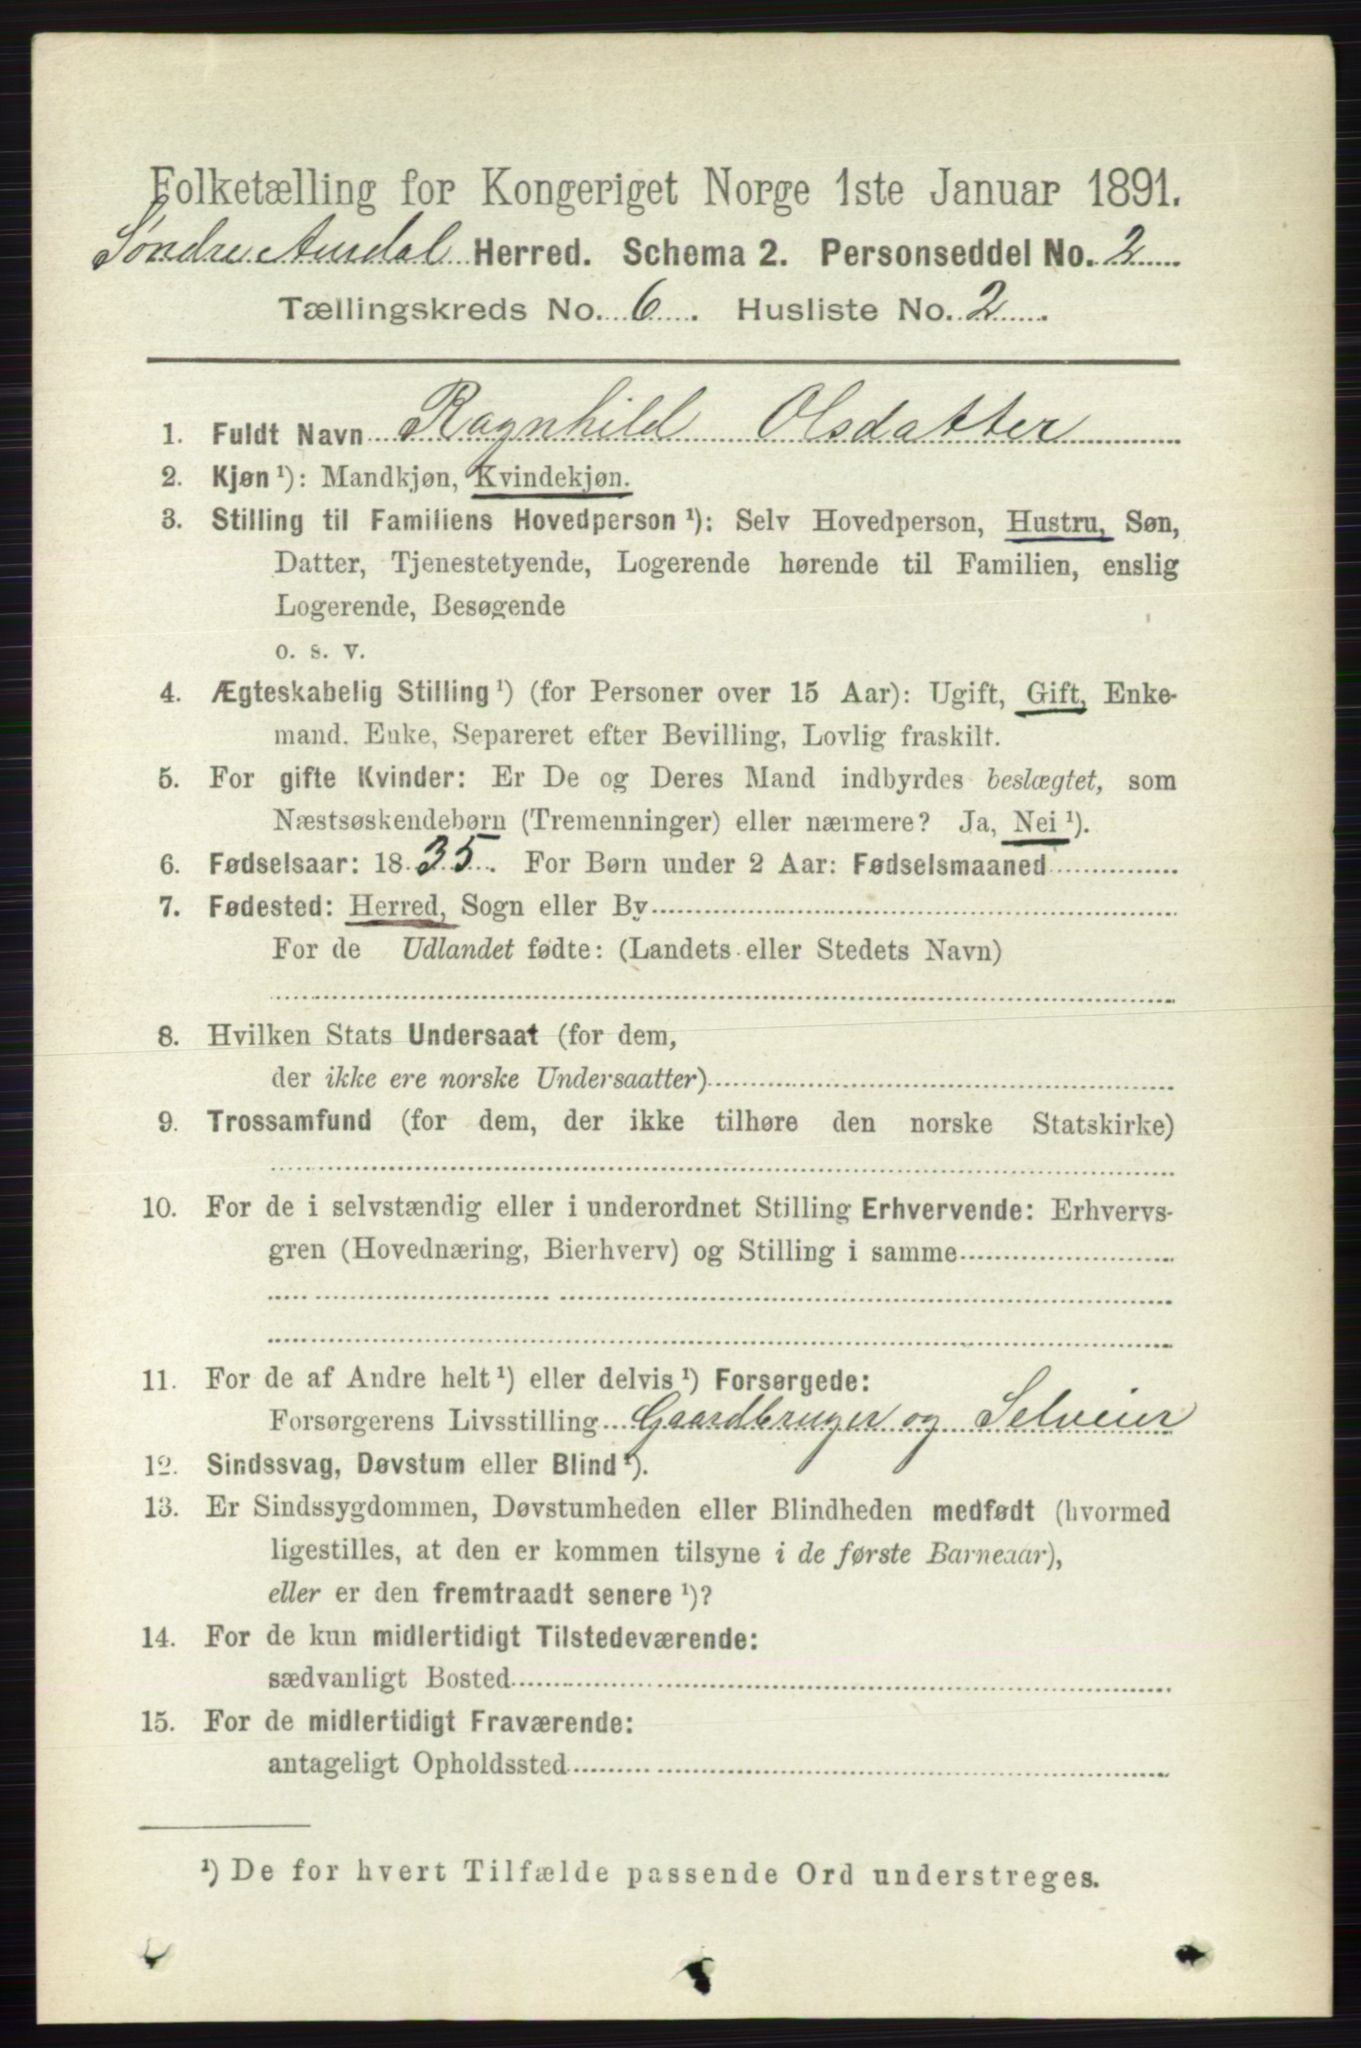 Folketælling for Kongeriget Norge 1ste Januar 1891.
Søndre Aurdal Herred. Schema 2. Personseddel No. 2
Tællingskreds No. 6. Husliste No. 2
1. Fuldt Navn Ragnhild Olsdatter
2. Kjøn ¹): Mandkjøn, Kvindekjøn.
3. Stilling til Familiens Hovedperson ¹): Selv Hovedperson, Hustru, Søn,
Datter, Tjenestetyende, Logerende hørende til Familien, enslig
Logerende, Besøgende
o. s. v.
4. Ægteskabelig Stilling ¹) (for Personer over 15 Aar): Ugift, Gift, Enke-
mand, Enke, Separeret efter Bevilling, Lovlig fraskilt.
5. For gifte Kvinder: Er De og Deres Mand indbyrdes beslægtet, som
Næstsøskendebørn (Tremenninger) eller nærmere? Ja, Nei ¹).
6. Fødselsaar: 1835. For Børn under 2 Aar: Fødselsmaaned
7. Fødested: Herred, Sogn eller By
For de Udlandet fødte: (Landets eller Stedets Navn)
8. Hvilken Stats Undersaat (for dem,
der ikke ere norske Undersaatter)
9. Trossamfund (for dem, der ikke tilhøre den norske Statskirke)
10. For de i selvstændig eller i underordnet Stilling Erhvervende: Erhvervs-
gren (Hovednæring, Bierhverv) og Stilling i samme
11. For de af Andre helt ¹) eller delvis ¹) Forsørgede:
Forsørgerens Livsstilling Gaardbruger og Selveier
12. Sindssvag, Døvstum eller Blind ¹).
13. Er Sindssygdommen, Døvstumheden eller Blindheden medfødt (hvormed
ligestilles, at den er kommen tilsyne i de første Barneaar),
eller er den fremtraadt senere ¹)?
14. For de kun midlertidigt Tilstedeværende:
sædvanligt Bosted
15. For de midlertidigt Fraværende:
antageligt Opholdssted
¹) De for hvert Tilfælde passende Ord understreges.